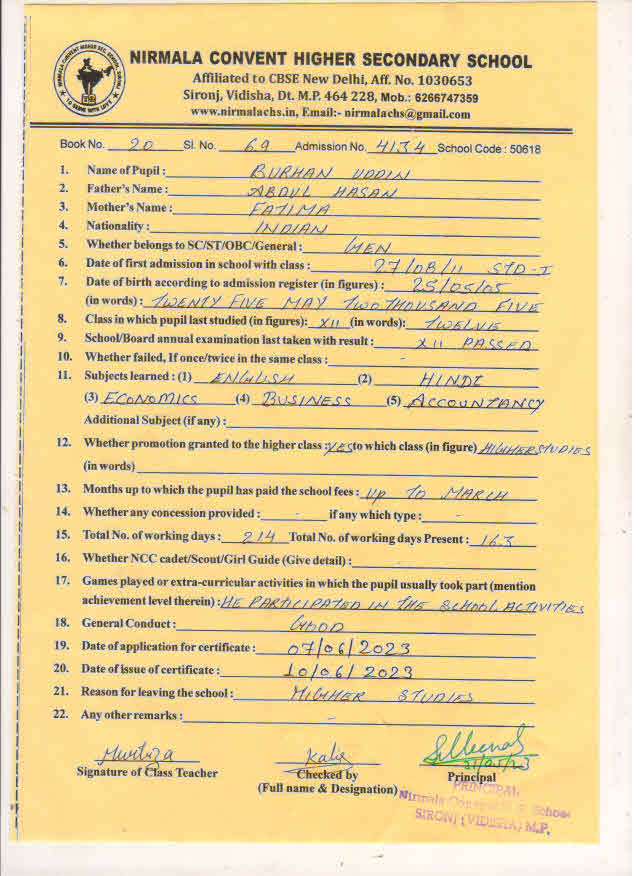 NIRMALA CONVENT HIGHER SECONDARY SCHOOL
Affiliated to CBSE New Delhi, Aff. No. 1030653
Sironj, Vidisha, Dt. M.P. 464 228, Mob.: 6266747359
www.nirmalachs.in, Email:- nirmalachs@gmail.com
Book No. 20 Sl. No. 69 Admission No. 4134 School Code : 50618
1. Name of Pupil : BURHAN UDDIN
2. Father's Name : ABDUL HASAN
3. Mother's Name : FATIMA
4. Nationality : INDIAN
5. Whether belongs to SC/ST/OBC/General : GEN
6. Date of first admission in school with class : 27/08/11 STD-I
7. Date of birth according to admission register (in figures) : 25/05/05
(in words) : TWENTY FIVE MAY TWO THOUSAND FIVE
8. Class in which pupil last studied (in figures): XII (in words): TWELVE
9. School/Board annual examination last taken with result : XII PASSED
10. Whether failed, If once/twice in the same class : -
11. Subjects learned : (1) ENGLISH (2) HINDI
(3) ECONOMICS (4) BUSINESS (5) ACCOUNTANCY
Additional Subject (if any) :
12. Whether promotion granted to the higher class : YES to which class (in figure) HIGHER STUDIES
(in words)
13. Months up to which the pupil has paid the school fees : UP TO MARCH
14. Whether any concession provided : - if any which type : -
15. Total No. of working days : 214 Total No. of working days Present : 163
16. Whether NCC cadet/Scout/Girl Guide (Give detail) : -
17. Games played or extra-curricular activities in which the pupil usually took part (mention
achievement level therein) : HE PARTICIPATED IN THE SCHOOL ACTIVITIES
18. General Conduct : GOOD
19. Date of application for certificate : 07/06/2023
20. Date of issue of certificate : 10/06/2023
21. Reason for leaving the school : HIGHER STUDIES
22. Any other remarks : -
Murtiza
Signature of Class Teacher Checked by Principal
(Full name & Designation)
PRINCIPAL
Nirmala Convent School
SIRONJ (VIDISHA) M.P.